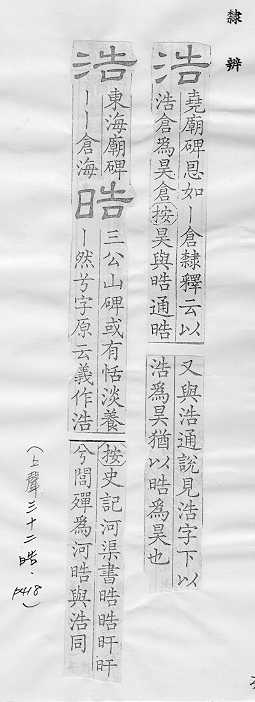 隸辨
浩
堯廟碑恩如丨倉隸釋云以
浩倉爲昊倉按昊與晧通晧
又與浩通說見浩字下以
浩爲昊猶以晧爲昊也
浩
東海廟碑
丨丨倉海
晧
三公山碑或有恬淡養
丨然兮字原云義作浩
按史記河渠書晧晧旰旰
兮閭殫爲河晧與浩同
(上聲三十二晧．P418)